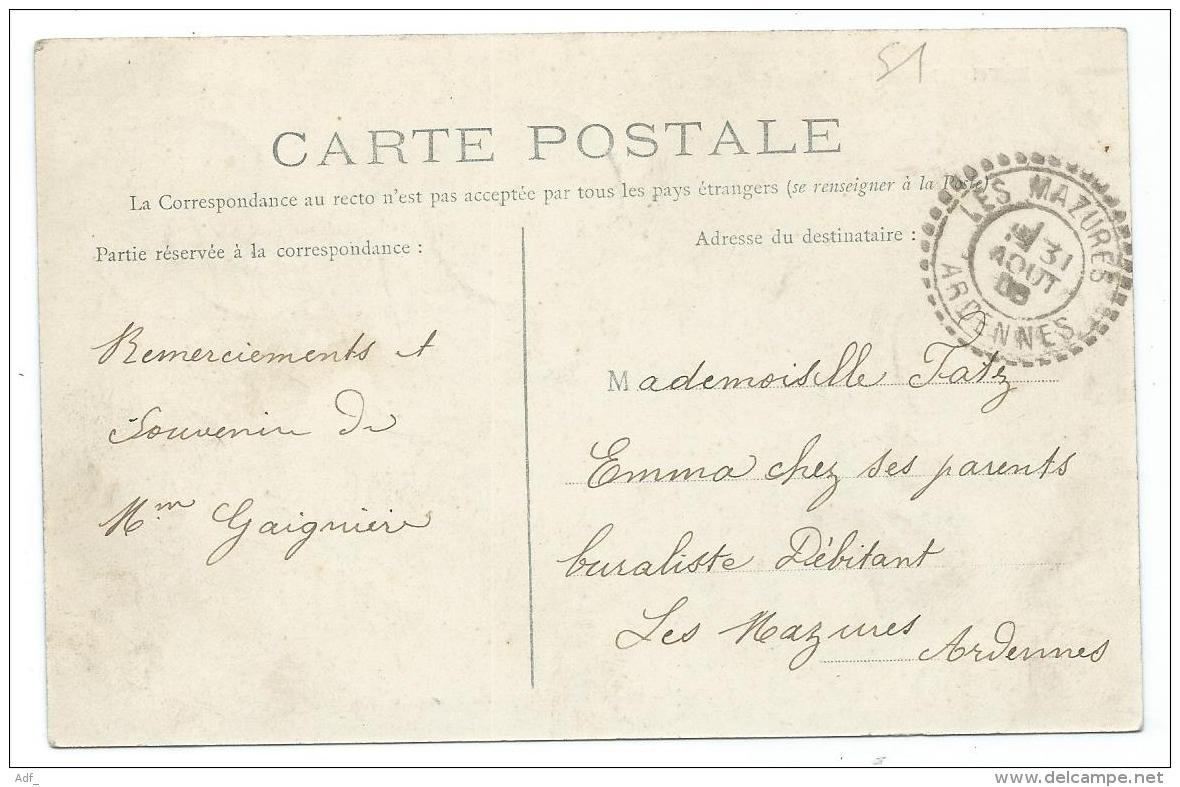 51
CARTE POSTALE
La Correspondance au recto n'est pas acceptée par tous les pays étrangers (se renseigner à la Poste)
Partie réservée à la correspondance :
Adresse du destinataire :
LES MAZURES
31
AOUT
ARDENNES
Remerciements et
Souvenir de
Mme Gaignière
Mademoiselle Fatz
Emma chez ses parents
buraliste Débitant
Les Mazures Ardennes
Adf_
www.delcampe.net